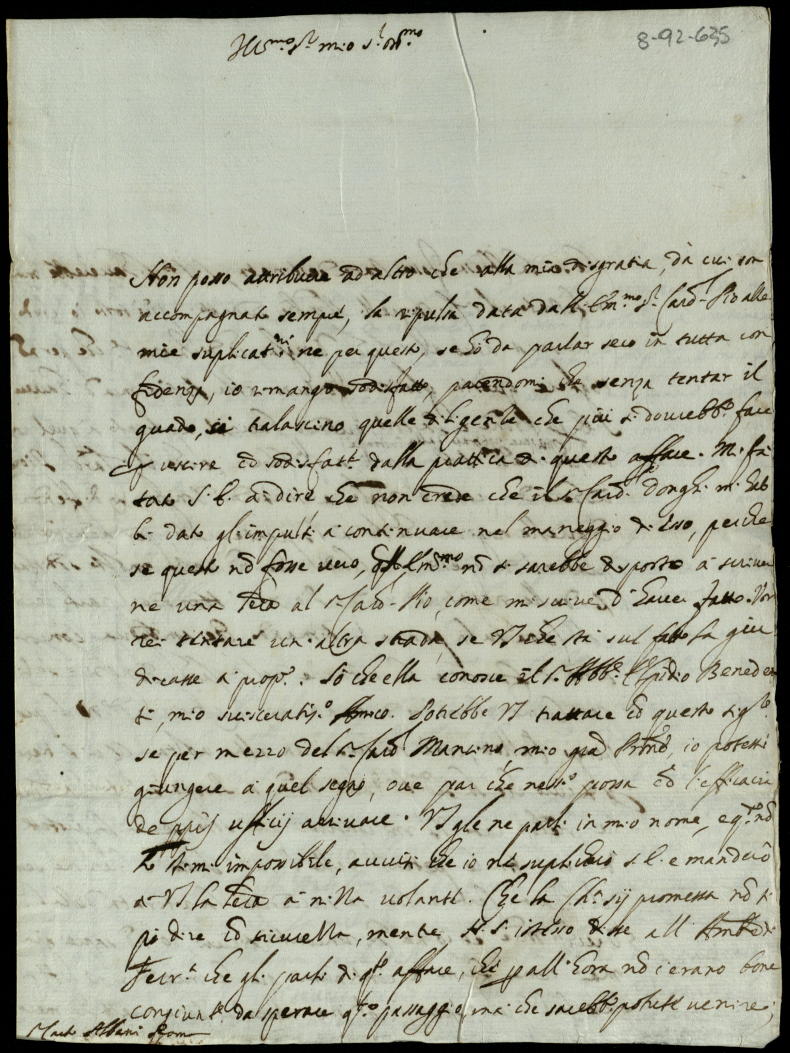 8-92-635
Ill.mo Sr mio Sr oss.mo
Non posso attribuire ad altro che alla mia disgratia, da cui son
accompagnato sempre, la repulsa data dall'Em.mo Sr Card. Pio alle
mie suplicat.ni ne per questo, se hò da parlar seco in tutta con
fidenza, io rimango sodisfatto, parendomi che senza tentar il
guado, si tralascino quelle diligenze che più si dovrebb.o fare
p uscire cõ sodisfatt.e dalla prattica di questo affare. Mi fa
tato S. E. a dire che non crede che il Sr Card. Donghi mi hab
bi dato gl'impulsi à continuare nel maneggio di esso, perche
se questo nõ fosse vero, Em.mo nõ si sarebbe disposto à scriver
ne una al Sr Card. Pio, come mi scrive d'haver fatto. Vor
rei tentare un'altra strada, se VS che stà sul fatto la giu
dicasse à prop.o. Sò che ella conosce il Sr Abb.e Elpidio Benedet
ti, mio svisceratiss.o Amico. Potrebbe VS trattare cõ questo Sig.re
se per mezzo del Sr Card. Mancino, mio grã Prõne, io potessi
giungere à quel segno, ove par che ness.o possa cõ l'efficacia
de pprij ufficij arrivare. VS gle ne parli in mio nome, e q.do nõ
lo stimi impossibile, avvisi che io ne suplicherò S. E. e manderò
à VS la à volante. Che la Ch.a sij promessa nõ si
può dire cõ sicurezza, mentre N. S. istesso disse all'Amb.re di
Ferr.a che gli parlò di q.o affare, che p all'hora nõ ci erano bone
congiunt.e da sperare q.sto passaggio, mà che sarebb.o potute venire;
Sr Carlo Albani Roma